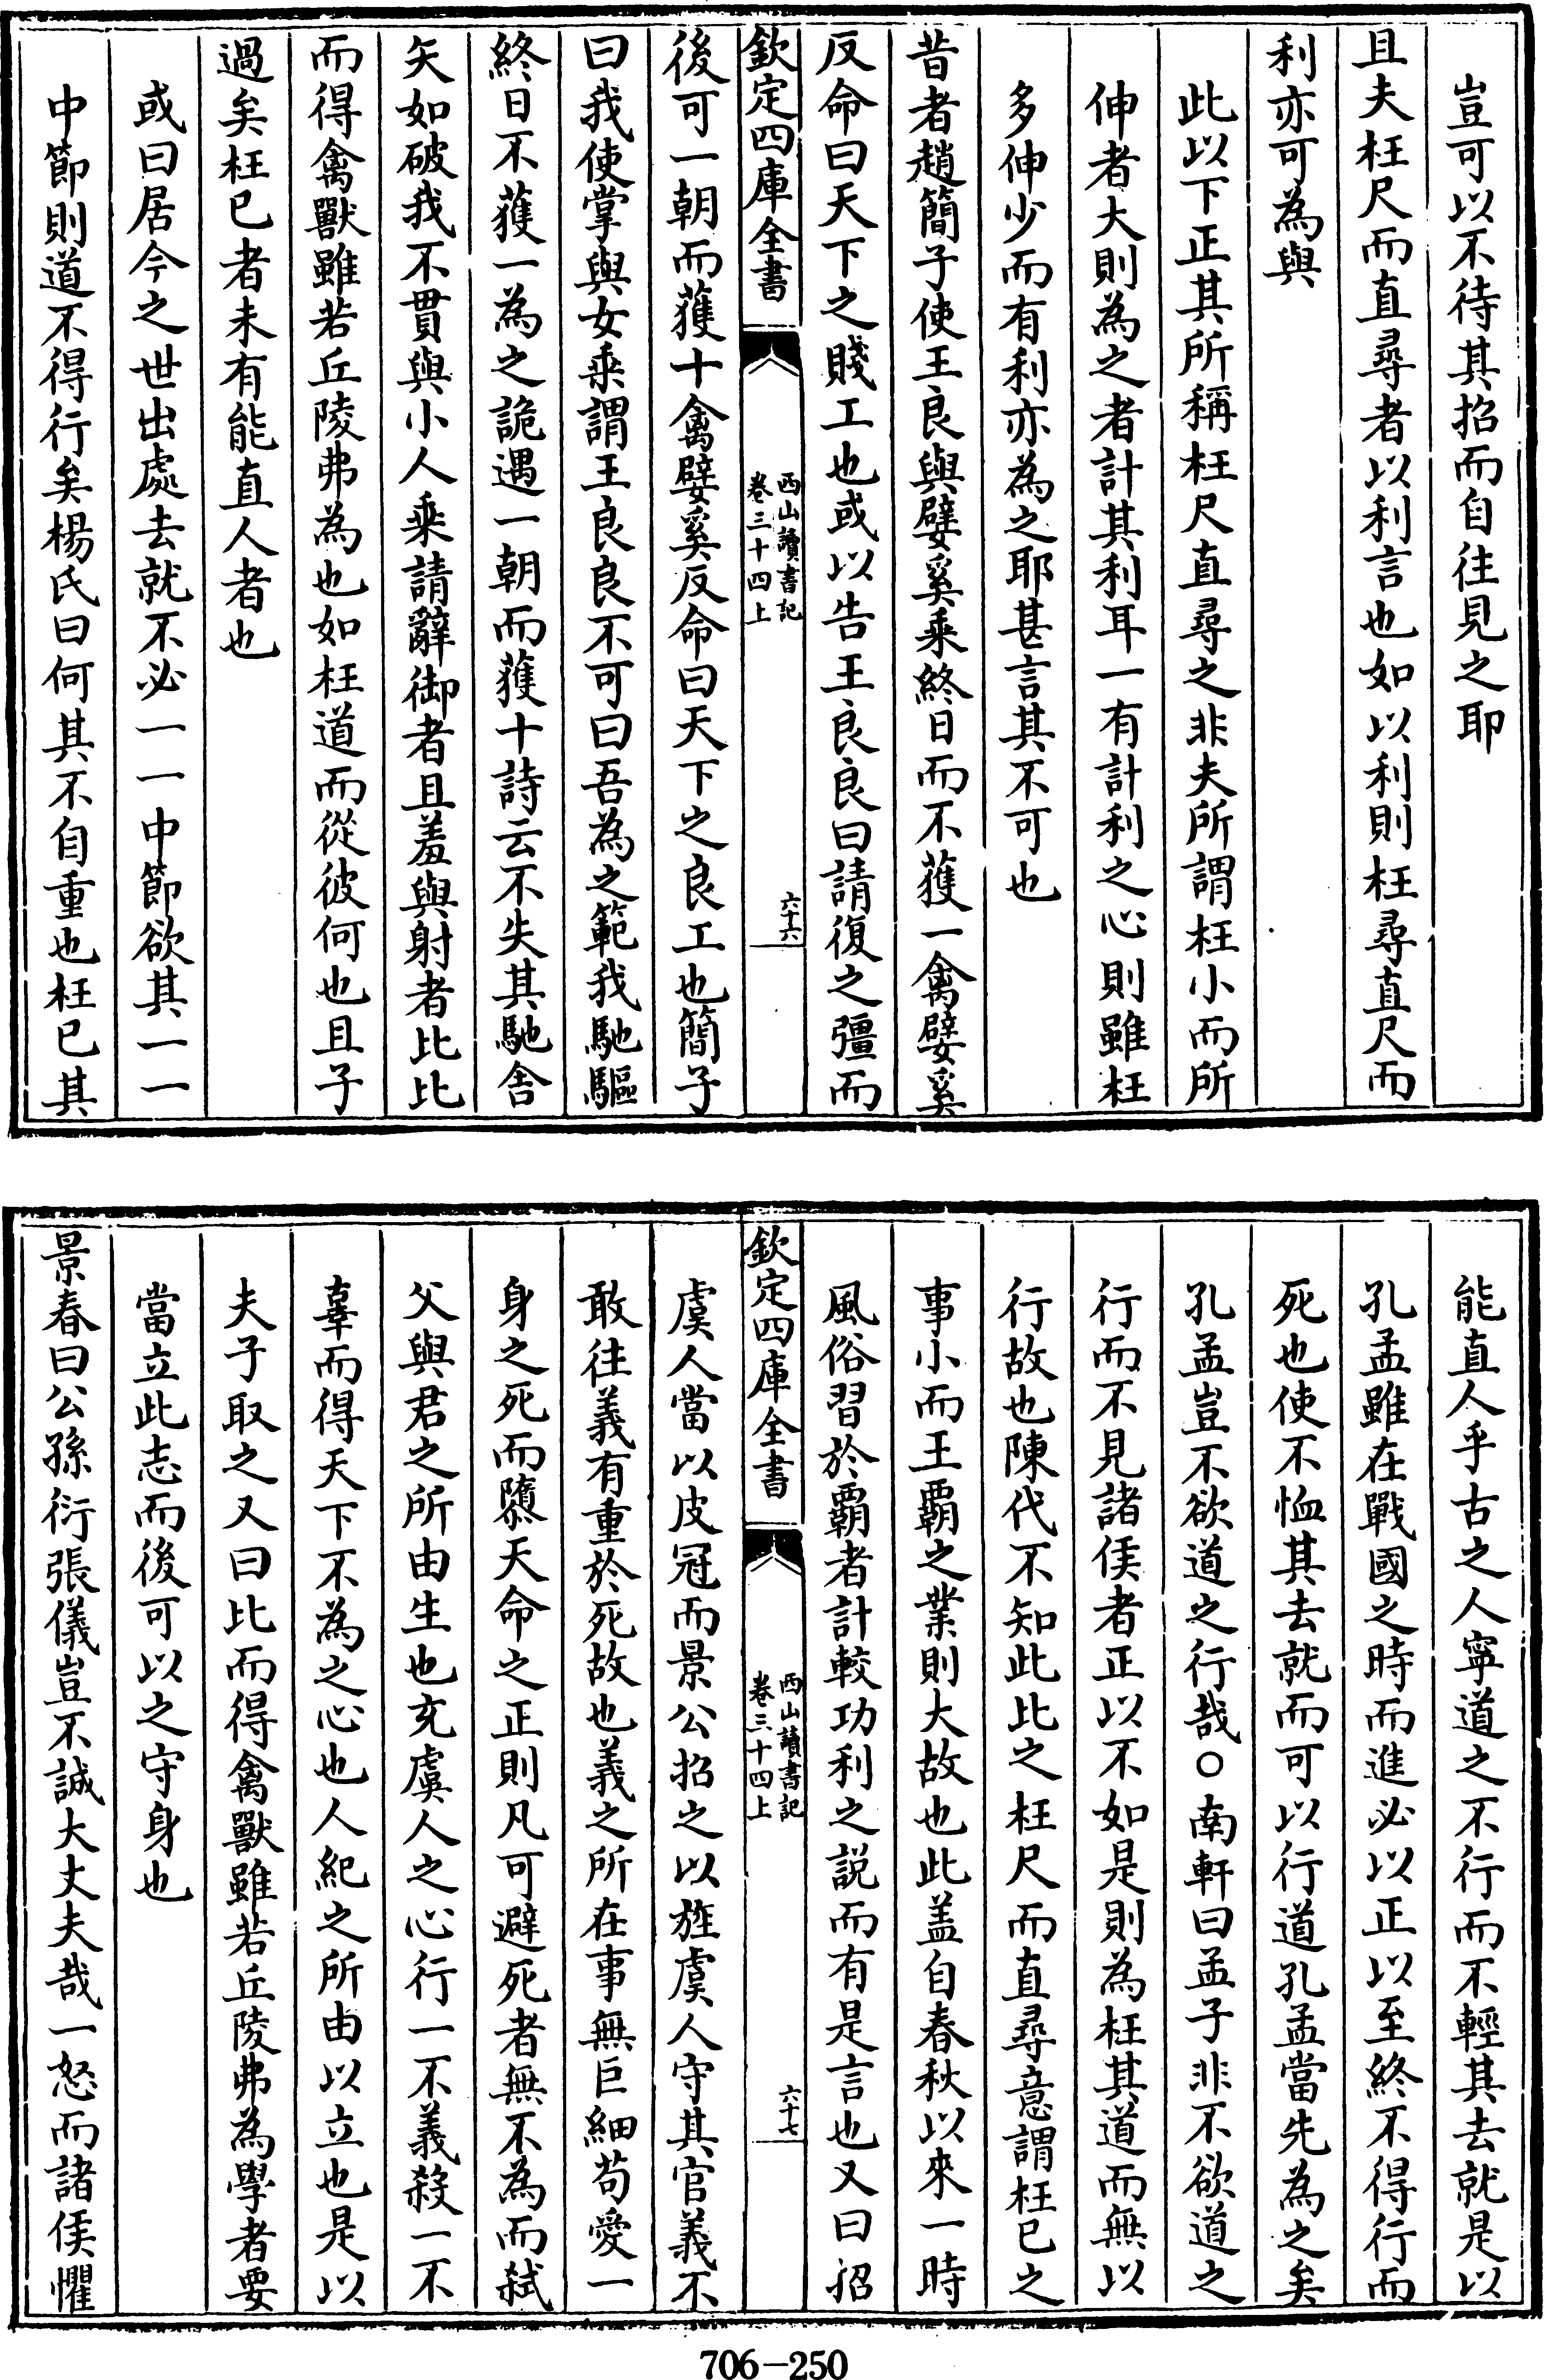 豈可以不待其招而自往見之耶
且夫枉尺而直尋者以利言也如以利則枉尋直尺而
利亦可為與
此以下正其所稱枉尺直尋之非夫所謂枉小而所
伸者大則為之者計其利耳一有計利之心則雖枉
多伸少而有利亦為之耶甚言其不可也
昔者趙簡子使王良與嬖奚乘終日而不獲一禽嬖奚
反命曰天下之賤工也或以告王良良曰請復之彊而
欽定四庫全書
西山讀書記
卷三十四上
六十六
後可一朝而獲十禽嬖奚反命曰天下之良工也簡子
曰我使掌與女乘謂王良良不可曰吾為之範我馳驅
終日不獲一為之詭遇一朝而獲十詩云不失其馳舍
矢如破我不貫與小人乘請辭御者且羞與射者比比
而得禽獸雖若丘陵弗為也如枉道而從彼何也且子
過矣枉已者未有能直人者也
或曰居今之世出處去就不必一一中節欲其一一
中節則道不得行矣楊氏曰何其不自重也枉已其
能直人乎古之人寧道之不行而不輕其去就是以
孔孟雖在戰國之時而進必以正以至終不得行而
死也使不恤其去就而可以行道孔孟當先為之矣
孔孟豈不欲道之行哉○南軒曰孟子非不欲道之
行而不見諸侯者正以不如是則為枉其道而無以
行故也陳代不知此比之枉尺而直尋意謂枉已之
事小而王霸之業則大故也此盖自春秋以來一時
風俗習於覇者計較功利之説而有是言也又曰招
欽定四庫全書
西山讀書記
卷三十四上
六十七
虞人當以皮冠而景公招之以旌虞人守其官義不
敢往義有重於死故也義之所在事無巨細苟愛一
身之死而隳天命之正則凡可避死者無不為而弑
父與君之所由生也充虞人之心行一不義殺一不
辜而得天下不為之心也人紀之所由以立也是以
夫子取之又曰比而得禽獸雖若丘陵弗為學者要
當立此志而後可以之守身也
景春曰公孫衍張儀豈不誠大丈夫哉一怒而諸侯懼
706-250